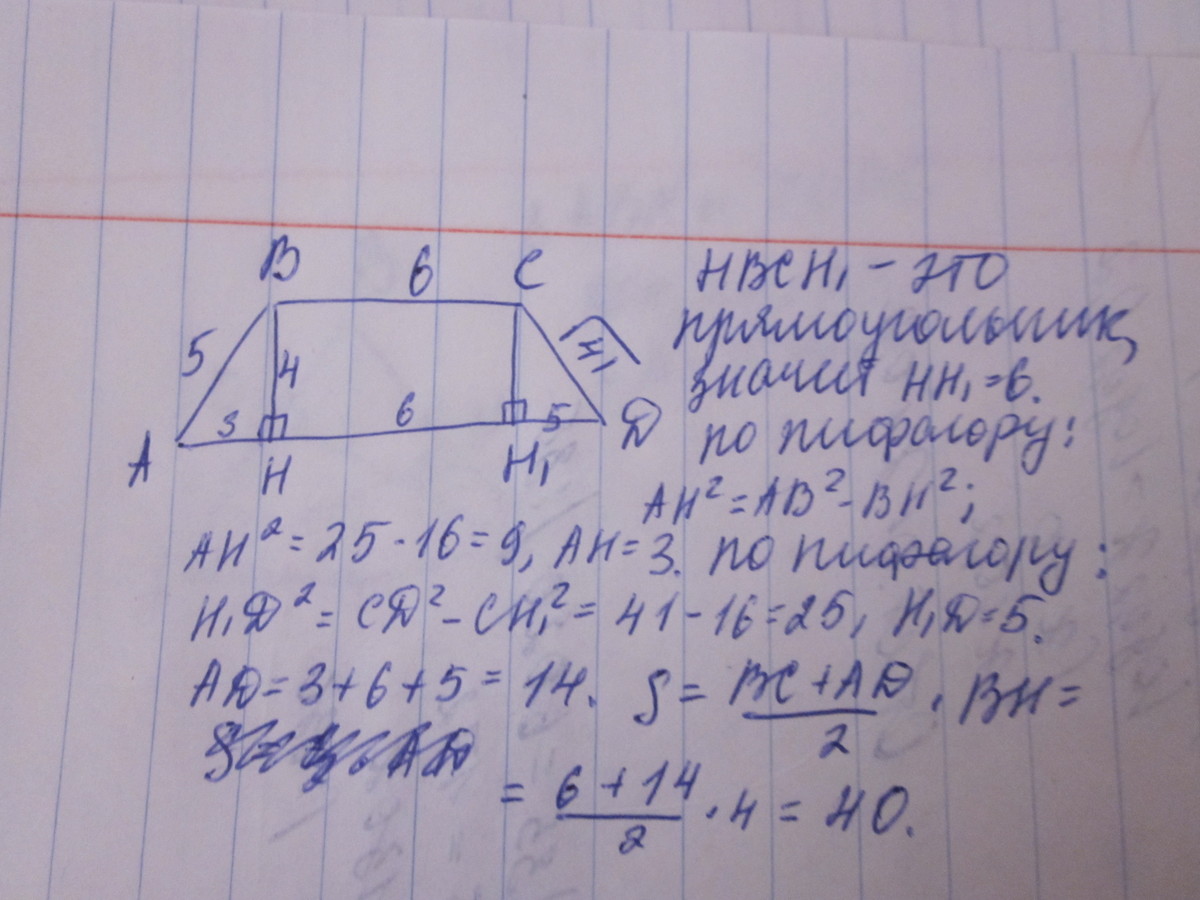 B 6 C
5 4 √41
3 6 5
A H H₁ D
HBCH₁ - это
прямоугольник,
значит HH₁=6.
по пифагору:
AH²=AB²-BH²;
AH²=25-16=9, AH=3. по пифагору:
H₁D²=CD²-CH₁²=41-16=25, H₁D=5.
AD=3+6+5=14. S=(BC+AD)/2·BH=
=(6+14)/2·4=40.